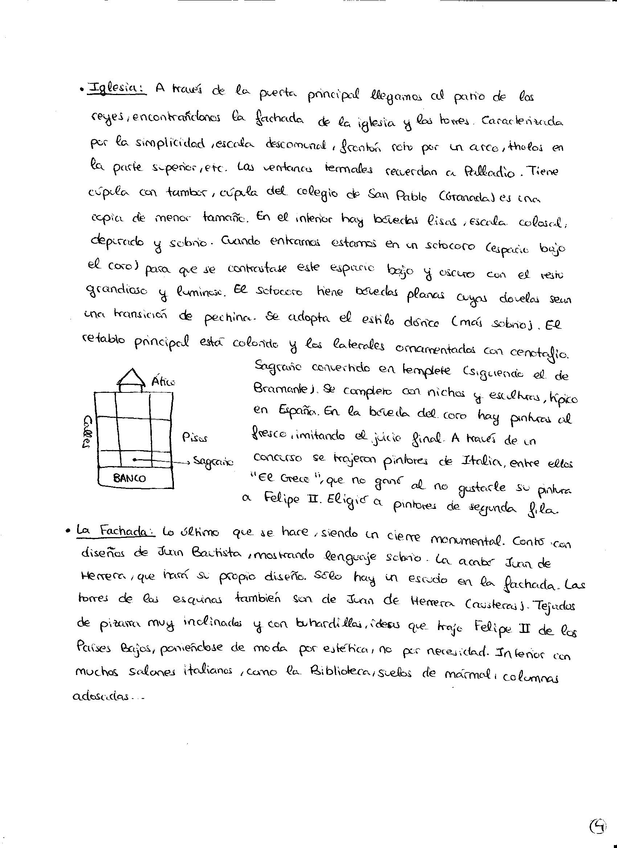 • Iglesia: A través de la puerta principal llegamos al patio de los
reyes, encontrándonos la fachada de la iglesia y las torres. Caracterizada
por la simplicidad, escala descomunal, frontón roto por un arco, tholos en
la parte superior, etc. Las ventanas termales recuerdan a Palladio. Tiene
cúpula con tambor, cúpula del colegio de San Pablo (Granada) es una
copia de menor tamaño. En el interior hay bóvedas lisas, escala colosal,
depurado y sobrio. Cuando entramos estamos en un sotocoro (espacio bajo
el coro) para que se contrastase este espacio bajo y oscuro con el resto
grandioso y luminoso. El sotocoro tiene bóvedas planas cuyas dovelas sean
una transición de pechina. Se adopta el estilo dórico (más sobrio). El
retablo principal está colorido y los laterales ornamentados con cenotafio.
Sagrario convertido en templete (siguiendo el de
Bramante). Se completa con nichos y esculturas, típico
en España. En la bóveda del coro hay pinturas al
fresco, imitando el juicio final. A través de un
concurso se trajeron pintores de Italia, entre ellos
"El Greco", que no ganó al no gustarle su pintura
a Felipe II. Eligió a pintores de segunda fila.
Ático
Calles
Pisos
Sagrario
BANCO
• La Fachada: Lo último que se hace, siendo un cierre monumental. Contó con
diseños de Juan Bautista, mostrando lenguaje sobrio. La acabó Juan de
Herrera, que hará su propio diseño. Sólo hay un escudo en la fachada. Las
torres de las esquinas también son de Juan de Herrera (austeras). Tejados
de pizarra muy inclinados y con buhardillas, ideas que trajo Felipe II de los
Países Bajos, poniéndose de moda por estética, no por necesidad. Interior con
muchos salones italianos, como la Biblioteca, suelos de mármol, columnas
adosadas...
(4)